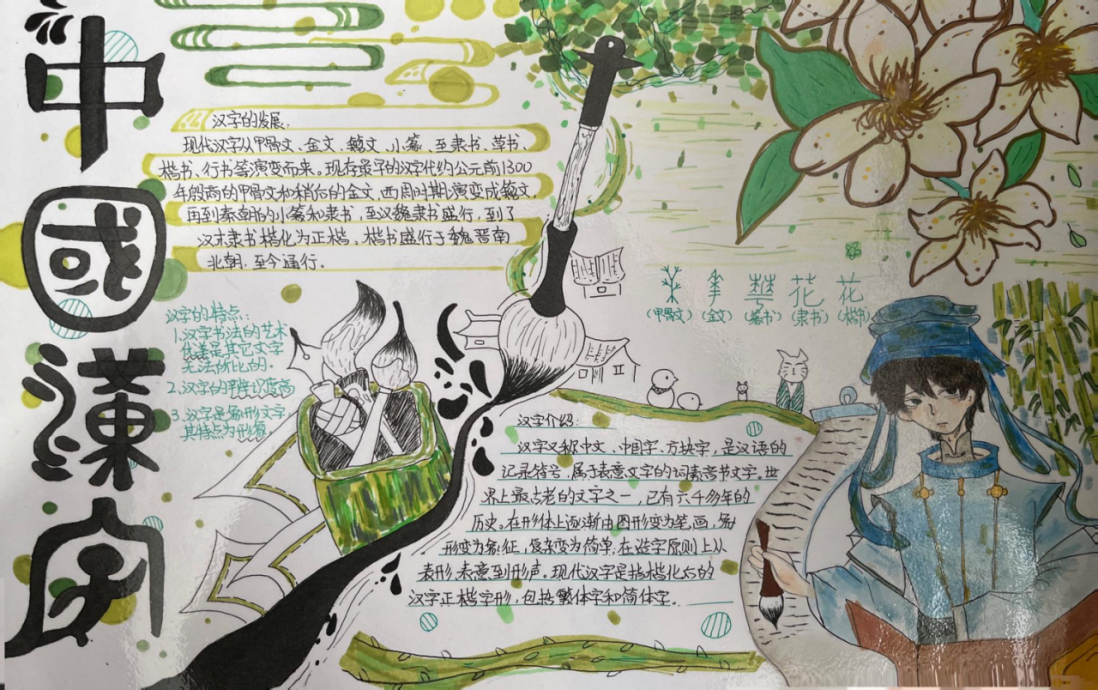 中
國
漢
字
汉字的发展.
现代汉字从甲骨文、金文、籀文、小篆、至隶书、草书、
楷书、行书等演变而来。现存最早的汉字代约公元前1300
年殷商的甲骨文和稍后的金文,西周时期演变成籀文
再到秦朝的小篆和隶书,至汉魏隶书盛行,到了
汉末隶书楷化为正楷,楷书盛行于魏晋南
北朝.至今通行.
汉字的特点:
1.汉字书法的艺术
是其它文字
无法所比的.
2.汉字的辨识度高
3.汉字是象形文字,
其特点为形
(甲骨文) (金文) (篆书) (隶书) (楷书)
花 花
汉字介绍:
汉字又称中文、中国字、方块字,是汉语的
记录符号,属于表意文字的词素音节文字,世
界上最古老的文字之一,已有六千多年的
历史。在形体上逐渐由图形变为笔画,象
形变为象征,复杂变为简单;在造字原则上从
表形、表意到形声,现代汉字是指楷化后的
汉字正楷字形,包括繁体字和简体字.